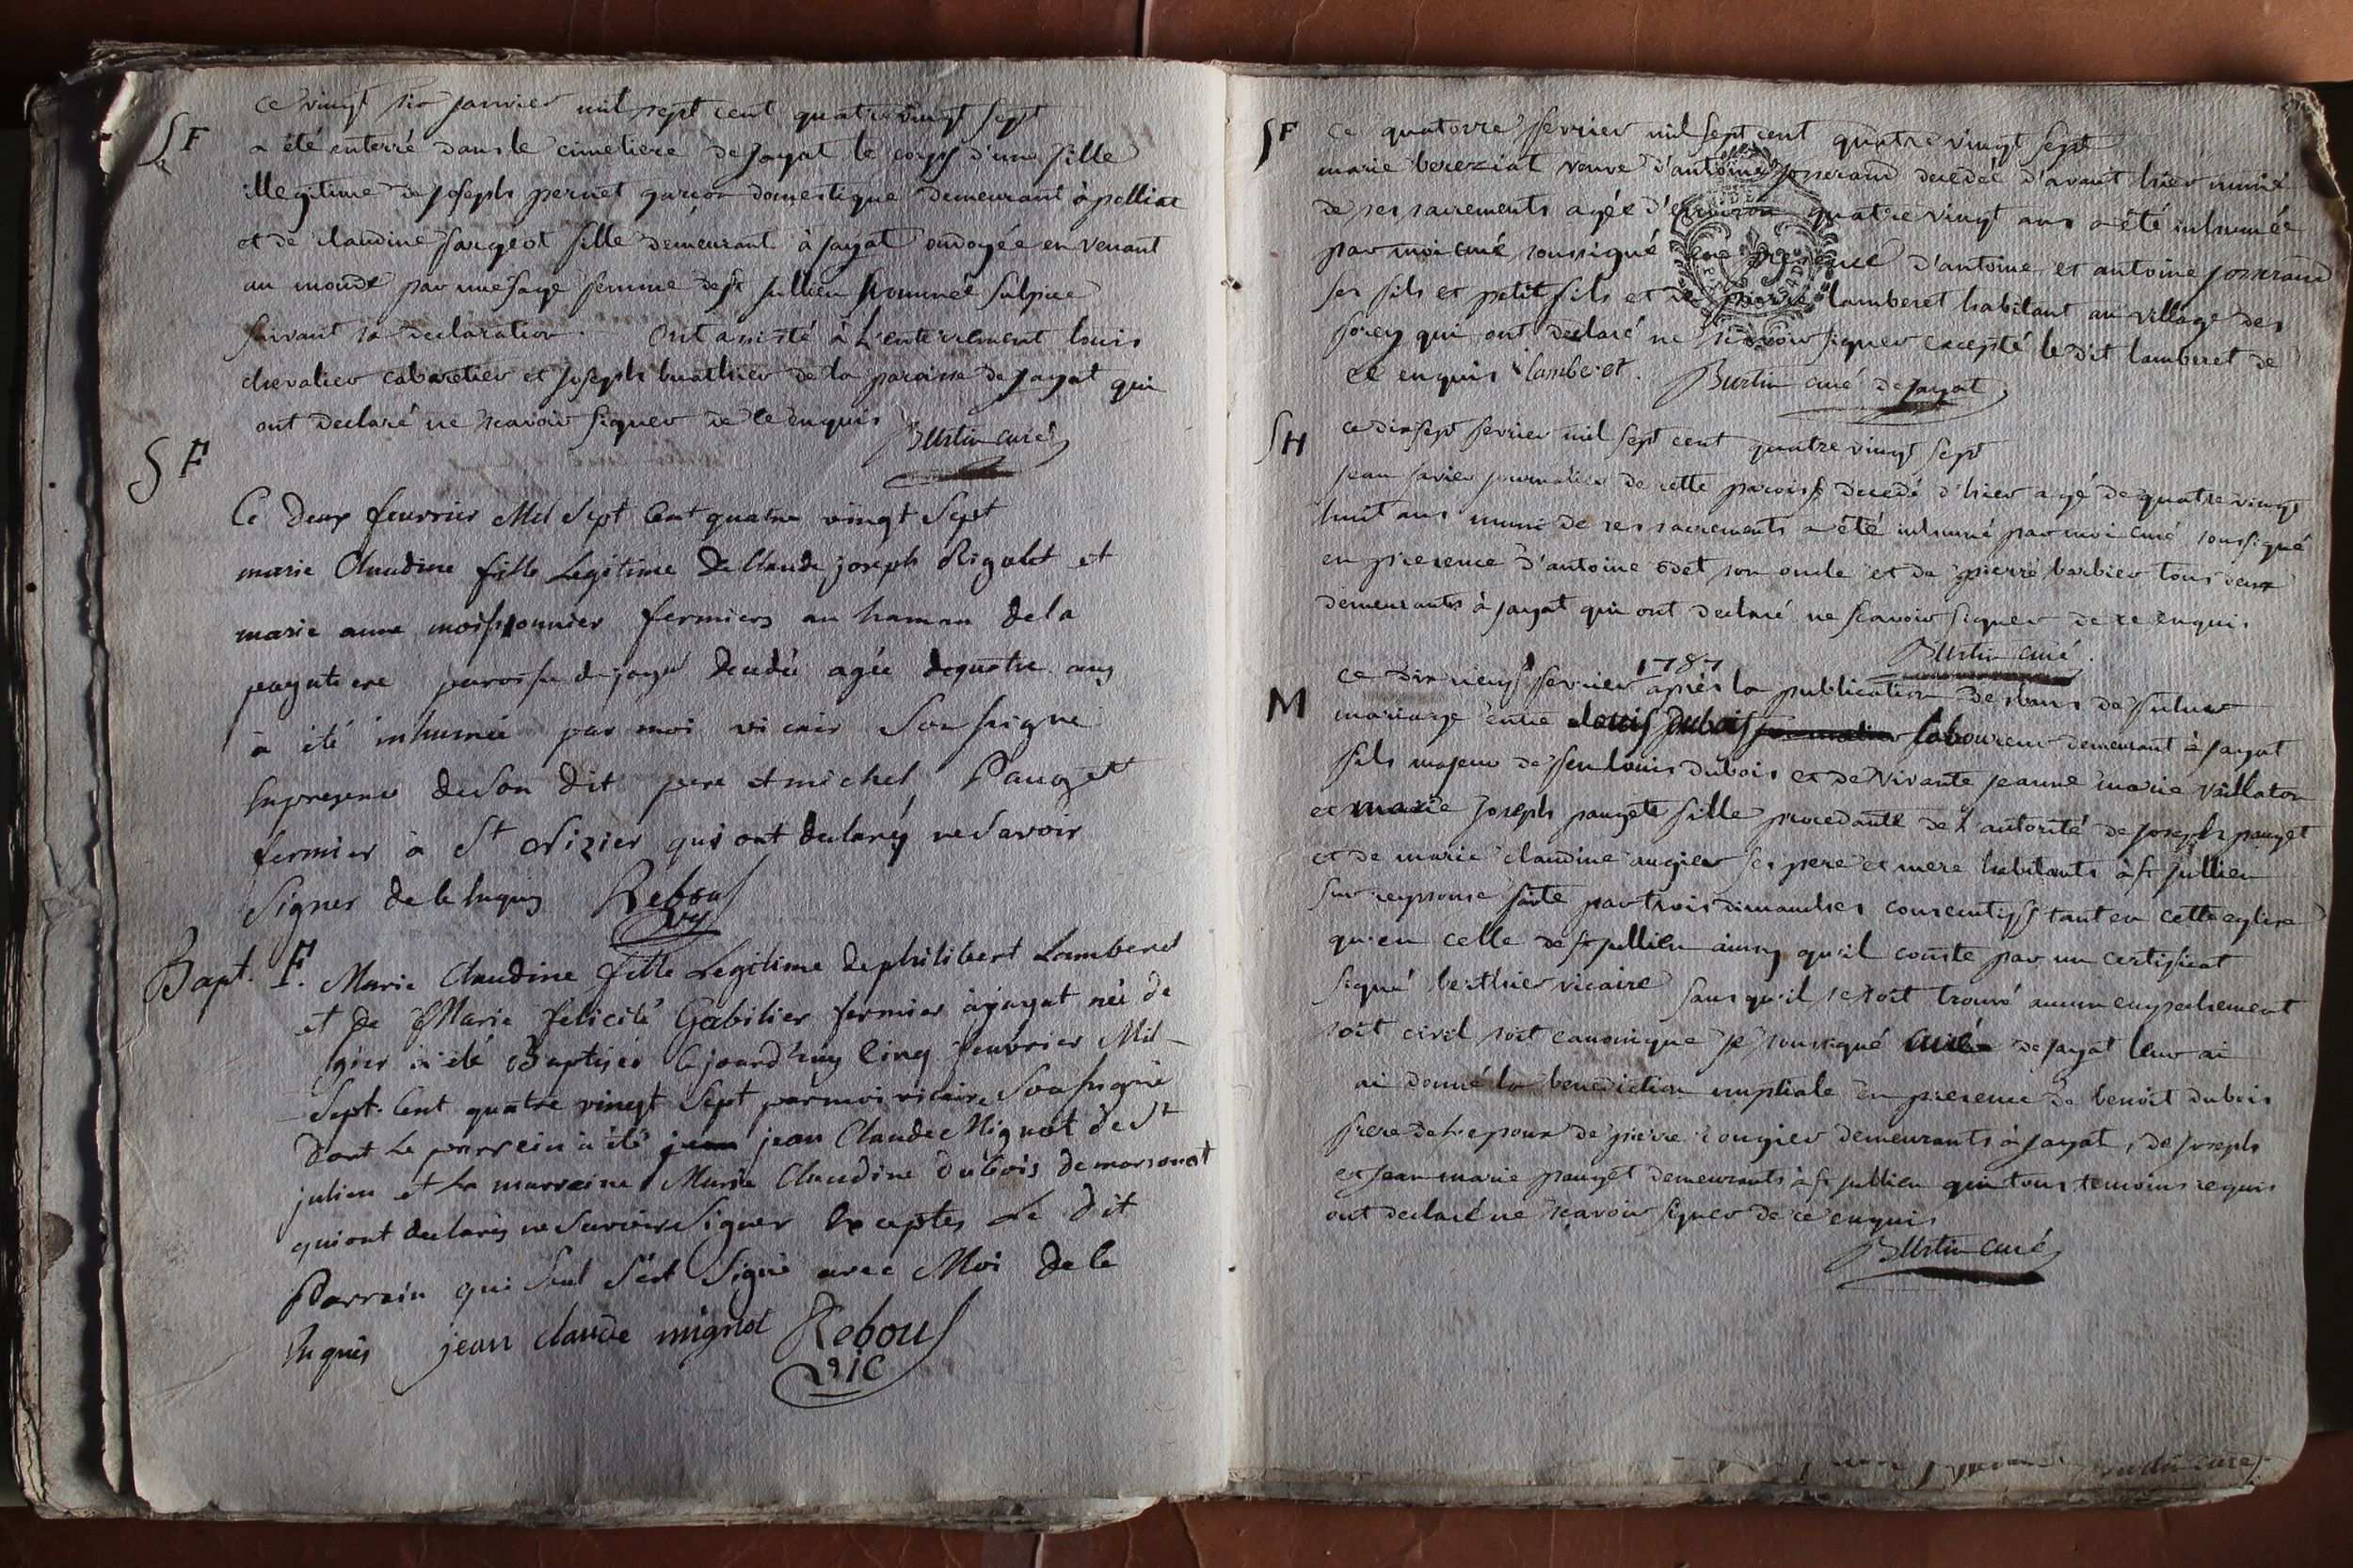 SF
ce vingt six janvier mil sept cent quatre vingt sept
a été enterré dans le cimetiere de jayat le corps d'une fille
illegitime de joseph pernet garçon domestique demeurant à
et de claudine fille demeurant à jayat ondoyée en venant
au monde par une sage femme de st jullien nommée Sulpice
suivant sa declaration. Ont assisté à l'enterrement louis
chevalier cabaretier et joseph buathier de la paroisse de jayat qui
ont declaré ne scavoir signer de ce enquis
Burtin curé
SF
Ce deux feuvrier Mil Sept Cent quatre vingt Sept
marie Claudine fille Legitime de Claude joseph Rigolet et
marie anne moissonnier fermiers au hamau de la
payatiere paroisse de jaya decedée agée de quatre ans
à été inhumée par moi vicair Sousigné
En presence de Son dit pere et michel Pauget
fermier à St Nizier qui ont declaréz ne Savoir
Signer de ce Enquis Rebous
vic
Bapt. F. Marie Claudine fille Legitime de philibert Lamberet
et de Marie felicité Gabilier fermier à jayat née de
hier à été Baptisée Cejourd'huy Cinq feuvrier Mil
Sept Cent quatre vingt Sept par moi vicaire Sousigné
Dont Le parrein à été jean Claude Mignot de St
julien et La marreine Marie Claudine dubois de marsonat
qui ont declarés ne Savoir Signer Exceptés Le dit
Parrain qui Seul S'est Signé avec Moi de Ce
Enquis jean claude mignot Rebous
vic
SF
ce quatorze fevrier mil sept cent quatre vingt sept
marie bereziat veuve d'antoine josserand decedée d'avant hier munie
de ses sacrements agée d'environ quatre vingt ans a été inhumée
par moi curé soussigné en presence d'antoine et antoine josserand
ses fils et petit fils et de pierre lamberet habitant au village des
forey qui ont declaré ne scavoir signer excepté le dit lamberet de
ce enquis lamberet. Burtin curé de jayat
SH
ce dix sept fevrier mil sept cent quatre vingt sept
jean journalier de cette paroisse decedé d'hier agé de quatre vingt
huit ans muni de ses sacrements a été inhumé par moi curé soussigné
en presence d'antoine odet son oncle et de pierre barbier tous deux
demeurants à jayat qui ont declaré ne scavoir signer de ce enquis
Burtin curé
M
1787
ce dix neuf fevrier après la publication de bans de futur
mariage entre louis Dubois laboureur demeurant à jayat
fils majeur de feu louis dubois et de vivante jeanne marie vaillaton
et marie joseph paugete fille procedante de l'autorité de joseph pauget
et de marie claudine augier ses pere et mere habitants à st jullien
sur reponse faite par trois dimanches consecutifs tant en cette eglise
qu'en celle de st jullien ainsy qu'il conste par un certificat
signé berthier vicaire sans qu'il se soit trouvé aucun empechement
soit civil soit canonique je soussigné curé de jayat leur ai
ai donné la benediction nuptiale en presence de benoit dubois
frere de l'epoux de pierre rougier demeurants à jayat, de joseph
et jean marie pauget demeurants à st jullien qui tous temoins requis
ont declaré ne scavoir signer de ce enquis
Burtin curé